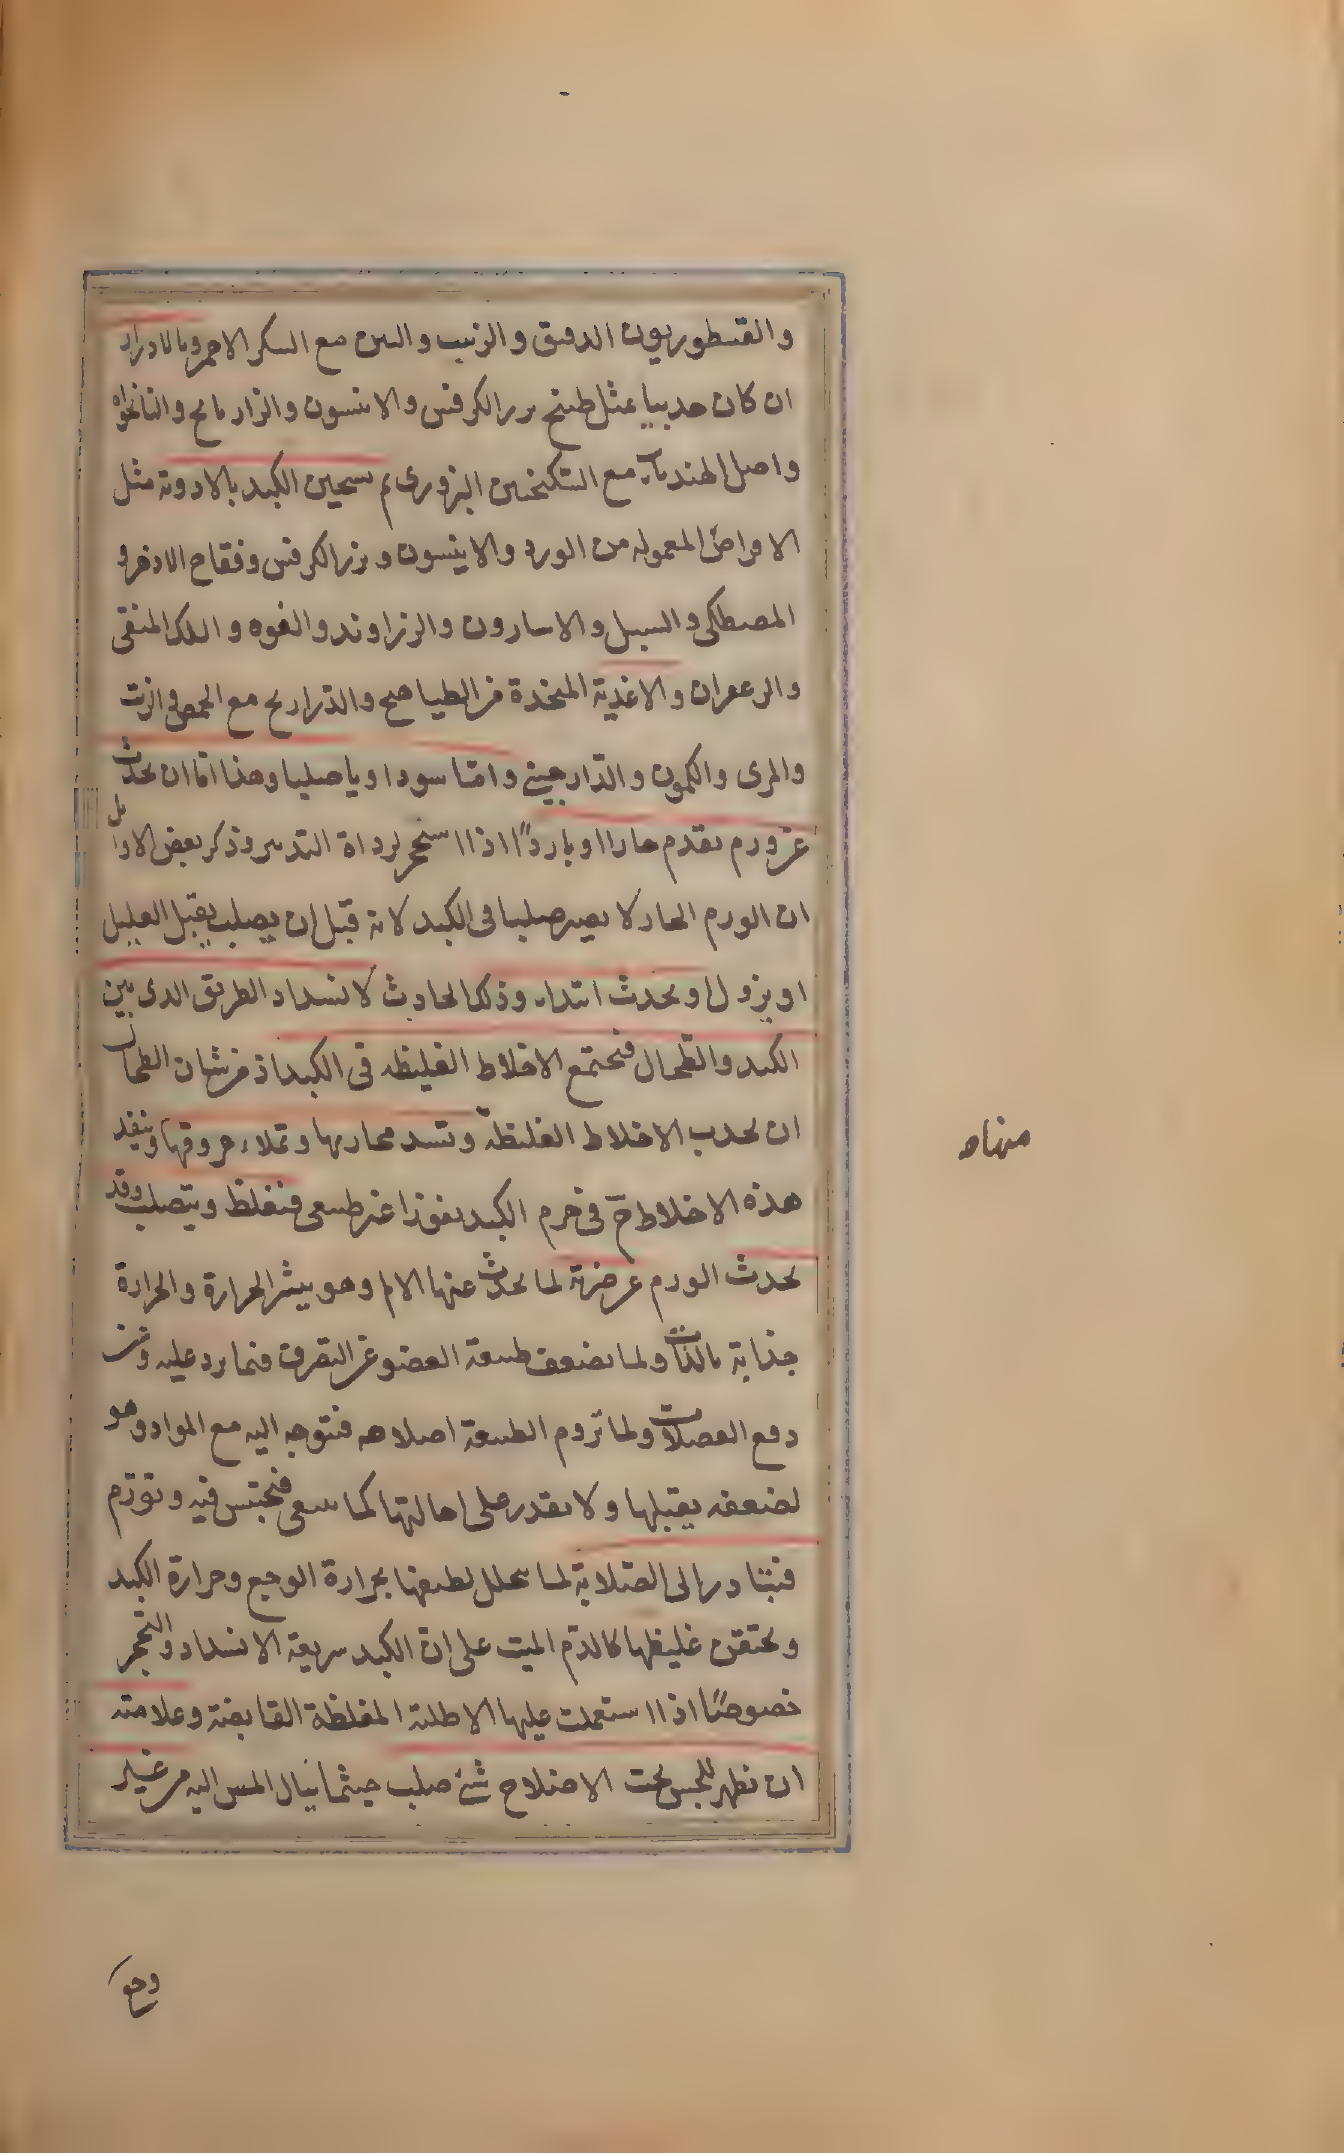 والقنطوريون الدقيق والزبيب والتين مع السكر الاحمر وبالادرار
ان كان حدبيا بمثل طبيخ بزر الكرفس والانيسون والرازيانج والنانخواه
واصل الهندباء مع السكنجبين البزورى ثم تسخين الكبد بالادوية مثل
الاقراص المعموله من الورد والانيسون وبزر الكرفس وفقاح الاذخر و
المصطكى والسنبل والاسارون والزراوند والفوه واللك المنقى
والزعفران والاغذية المتخذة من الطياهيج والدراريج مع الحمص والزيت
والمرى والكمون والدارچينى واما سوداويا صلبا وهذا اما ان يحدث
عن ورم تقدم حارا او باردًا اذا استحجر لرداة التدبير وذكر بعض الاوايل
ان الورم الحار لا يصير صلبا فى الكبد لانه قبل ان يصلب يقتل العليل
او يزول او يحدث ابتداء وذلك الحادث لانسداد الطريق الذى بين
الكبد والطحال فتجتمع الاخلاط الغليظه فى الكبد اذ من شان الطحال
ان يجذب الاخلاط الغليظة وتسد مجاريها وتملاء عروقها وينفذ
هذه الاخلاط ح فى جرم الكبد نفوذا غير طبيعى فتغلظ ويتصلب وقد
يحدث الورم عن ضربة لما يحدث عنها الالم وهو يثير الحرارة والحرارة
جذابة بالذات ولما تضعف طبيعة العضو عن التصرف فيما يرد عليه وعن
دفع الفضلات ولما تروم الطبيعة اصلاحه فتتوجه اليه مع المواد وهو
لضعفه يقبلها ولا يقدر على احالتها كما ينبغى فتحتبس فيه وتورم
فيتبادر الى الصلابة لما يتحلل لطيفها بحرارة الوجع وحرارة الكبد
ويحتقن غليظها كالدم الميت على ان الكبد سريعة الانسداد والتحجر
خصوصًا اذا استعملت عليها الاطلية المغلظة القابضة وعلامته
ان يظهر للجس تحت الاضلاع شئ صلب حيثما ينال المس اليه من غير
منهاه
وجع